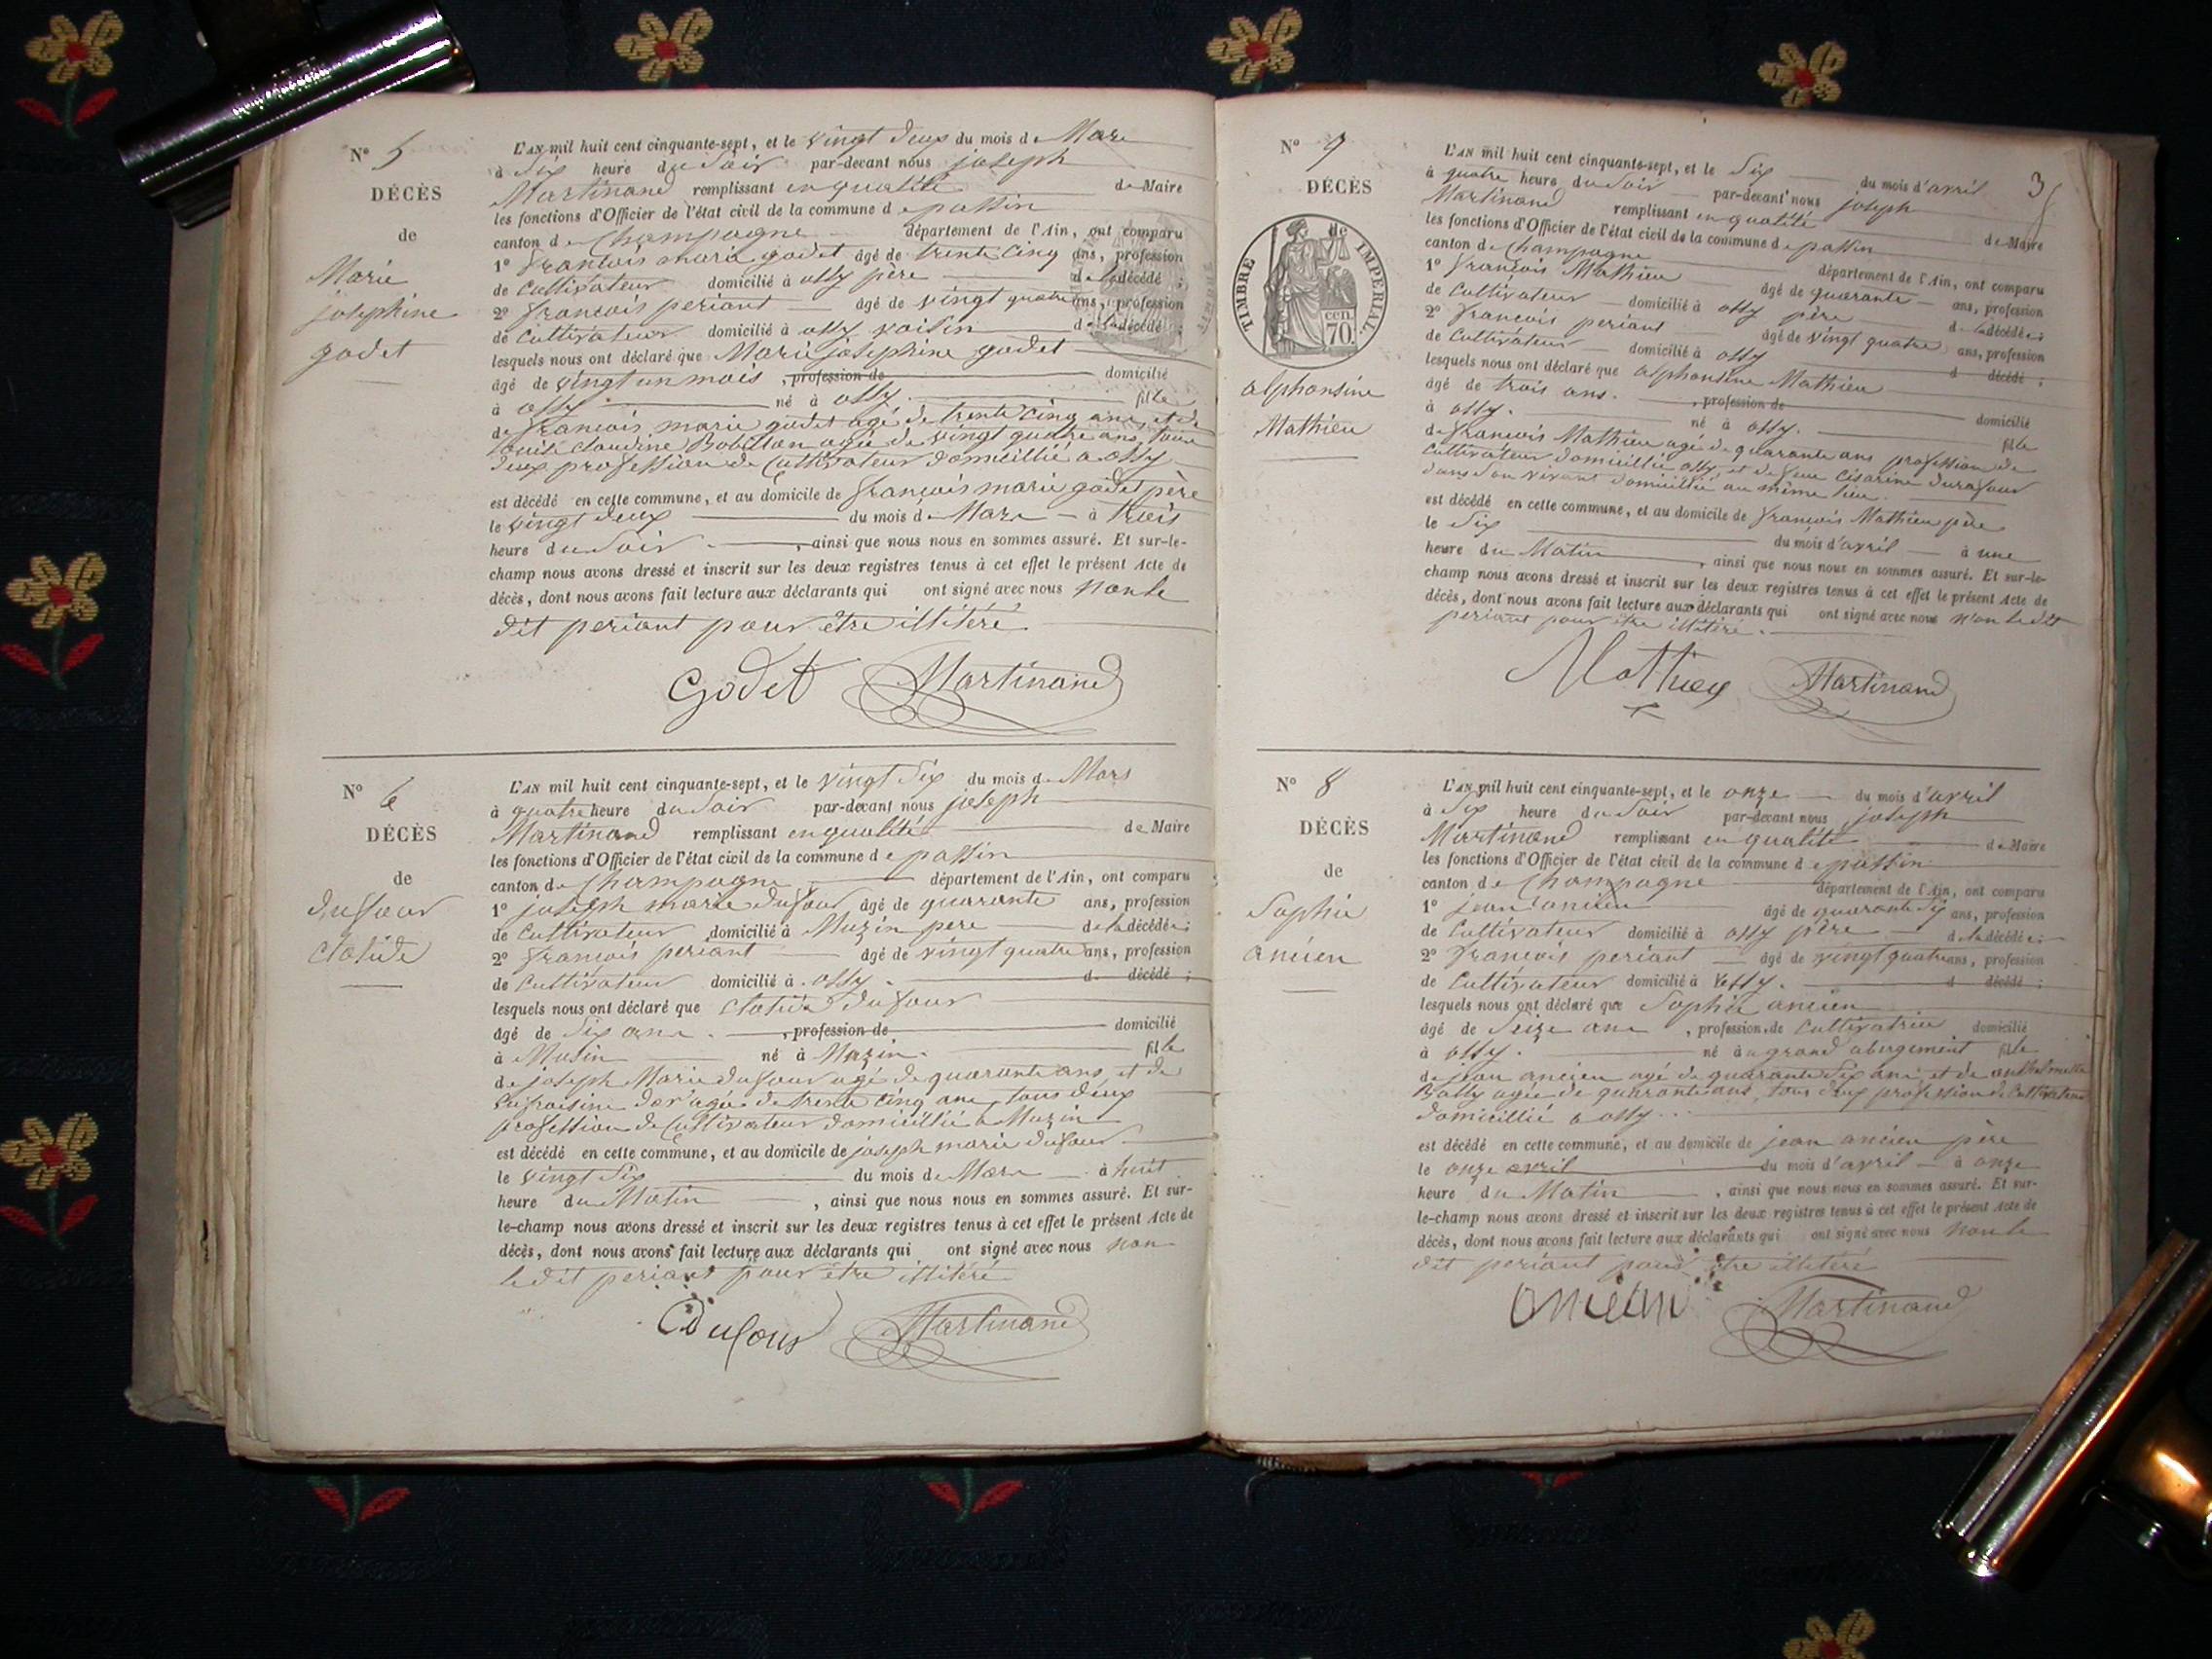 N° 5
DÉCÈS
de
Marie
josephine
godet
L'AN mil huit cent cinquante-sept, et le vingt deux du mois de Mars
à Six heure du Soir par-devant nous joseph
Martinand remplissant en qualité de Maire
les fonctions d'Officier de l'état civil de la commune de passin
canton de Champagne département de l'Ain, ont comparu
1° françois marie godet âgé de trente cinq ans, profession
de Cultivateur domicilié à ossy père de la décédé ;
2° françois periant âgé de vingt quatre ans, profession
de Cultivateur domicilié à ossy voisin de la décédé ;
lesquels nous ont déclaré que Marie josephine godet
âgé de vingt un mois , profession de domicilié
à ossy né à ossy. fille
de françois marie godet agé de trente cinq ans, et de
Louise claudine agée de vingt quatre ans, tous
deux profession de Cultivateur domicillié a ossy
est décédé en cette commune, et au domicile de françois marie godet père
le vingt deux du mois de Mars à trois
heure du Soir , ainsi que nous nous en sommes assuré. Et sur-le-
champ nous avons dressé et inscrit sur les deux registres tenus à cet effet le présent Acte de
décès, dont nous avons fait lecture aux déclarants qui ont signé avec nous non le
dit periant pour être illitéré
Godet Martinand
N° 6
DÉCÈS
de
dufour
clotide
L'AN mil huit cent cinquante-sept, et le vingt Six du mois de Mars
à quatre heure du Soir par-devant nous joseph
Martinand remplissant en qualité de Maire
les fonctions d'Officier de l'état civil de la commune de passin
canton de Champagne département de l'Ain, ont comparu
1° joseph marie dufour âgé de quarante ans, profession
de Cultivateur domicilié à Muzin pere de la décédée ;
2° françois periant âgé de vingt quatre ans, profession
de Cultivateur domicilié à ossy d décédé ;
lesquels nous ont déclaré que clotide dufour
âgé de Six ans. , profession de domicilié
à Musin né à Muzin. fille
de joseph Marie dufour agé de quarante ans, et de
agée de trente cinq ans, tous deux
profession de Cultivateur domicillié a Muzin
est décédé en cette commune, et au domicile de joseph marie dufour
le vingt Six du mois de Mars à huit
heure du Matin , ainsi que nous nous en sommes assuré. Et sur-
le-champ nous avons dressé et inscrit sur les deux registres tenus à cet effet le présent Acte de
décès, dont nous avons fait lecture aux déclarants qui ont signé avec nous non
le dit periant pour être illitéré
Dufour Martinand
35
N° 7
DÉCÈS
de
TIMBRE IMPÉRIAL.
70. cen.
alphonsine
Mathieu
L'AN mil huit cent cinquante-sept, et le Six du mois d'avril
à quatre heure du Soir par-devant nous joseph
Martinand remplissant en qualité de Maire
les fonctions d'Officier de l'état civil de la commune de passin
canton de Champagne département de l'Ain, ont comparu
1° françois Mathieu âgé de quarante ans, profession
de Cultivateur domicilié à ossy père de la décédée ;
2° françois periant âgé de vingt quatre ans, profession
de Cultivateur domicilié à ossy d décédé ;
lesquels nous ont déclaré que alphonsine Mathieu
âgé de trois ans. , profession de domicilié
à ossy. né à ossy. fille
de françois Mathieu agé de quarante ans profession de
Cultivateur domicillié ossy et de feue Césarine durafour
dans son vivant domicillié au même lieu.
est décédé en cette commune, et au domicile de françois Mathieu père
le Six du mois d'avril à une
heure du Matin , ainsi que nous nous en sommes assuré. Et sur-le-
champ nous avons dressé et inscrit sur les deux registres tenus à cet effet le présent Acte de
décès, dont nous avons fait lecture aux déclarants qui ont signé avec nous non le dit
periant pour être illitéré.
Mathieu Martinand
N° 8
DÉCÈS
de
Sophie
ancien
L'AN mil huit cent cinquante-sept, et le onze du mois d'avril
à Six heure du Soir par-devant nous joseph
Martinand remplissant en qualité de Maire
les fonctions d'Officier de l'état civil de la commune de passin
canton de Champagne département de l'Ain, ont comparu
1° jean ancien âgé de quarante Six ans, profession
de Cultivateur domicilié à ossy père de la décédée ;
2° françois periant âgé de vingt quatre ans, profession
de Cultivateur domicilié à ossy. d décédé ;
lesquels nous ont déclaré que Sophie ancien
âgé de Seize ans , profession de Cultivatrice domicilié
à ossy. né à grand abergement fille
de jean ancien agé de quarante Six ans et de
Bally agée de quarante ans, tous deux profession de Cultivateur
domicillié a ossy
est décédé en cette commune, et au domicile de jean ancien père
le onze avril du mois d'avril à onze
heure du Matin , ainsi que nous nous en sommes assuré. Et sur-
le-champ nous avons dressé et inscrit sur les deux registres tenus à cet effet le présent Acte de
décès, dont nous avons fait lecture aux déclarants qui ont signé avec nous non le
dit periant pour être illitéré
ancien Martinand